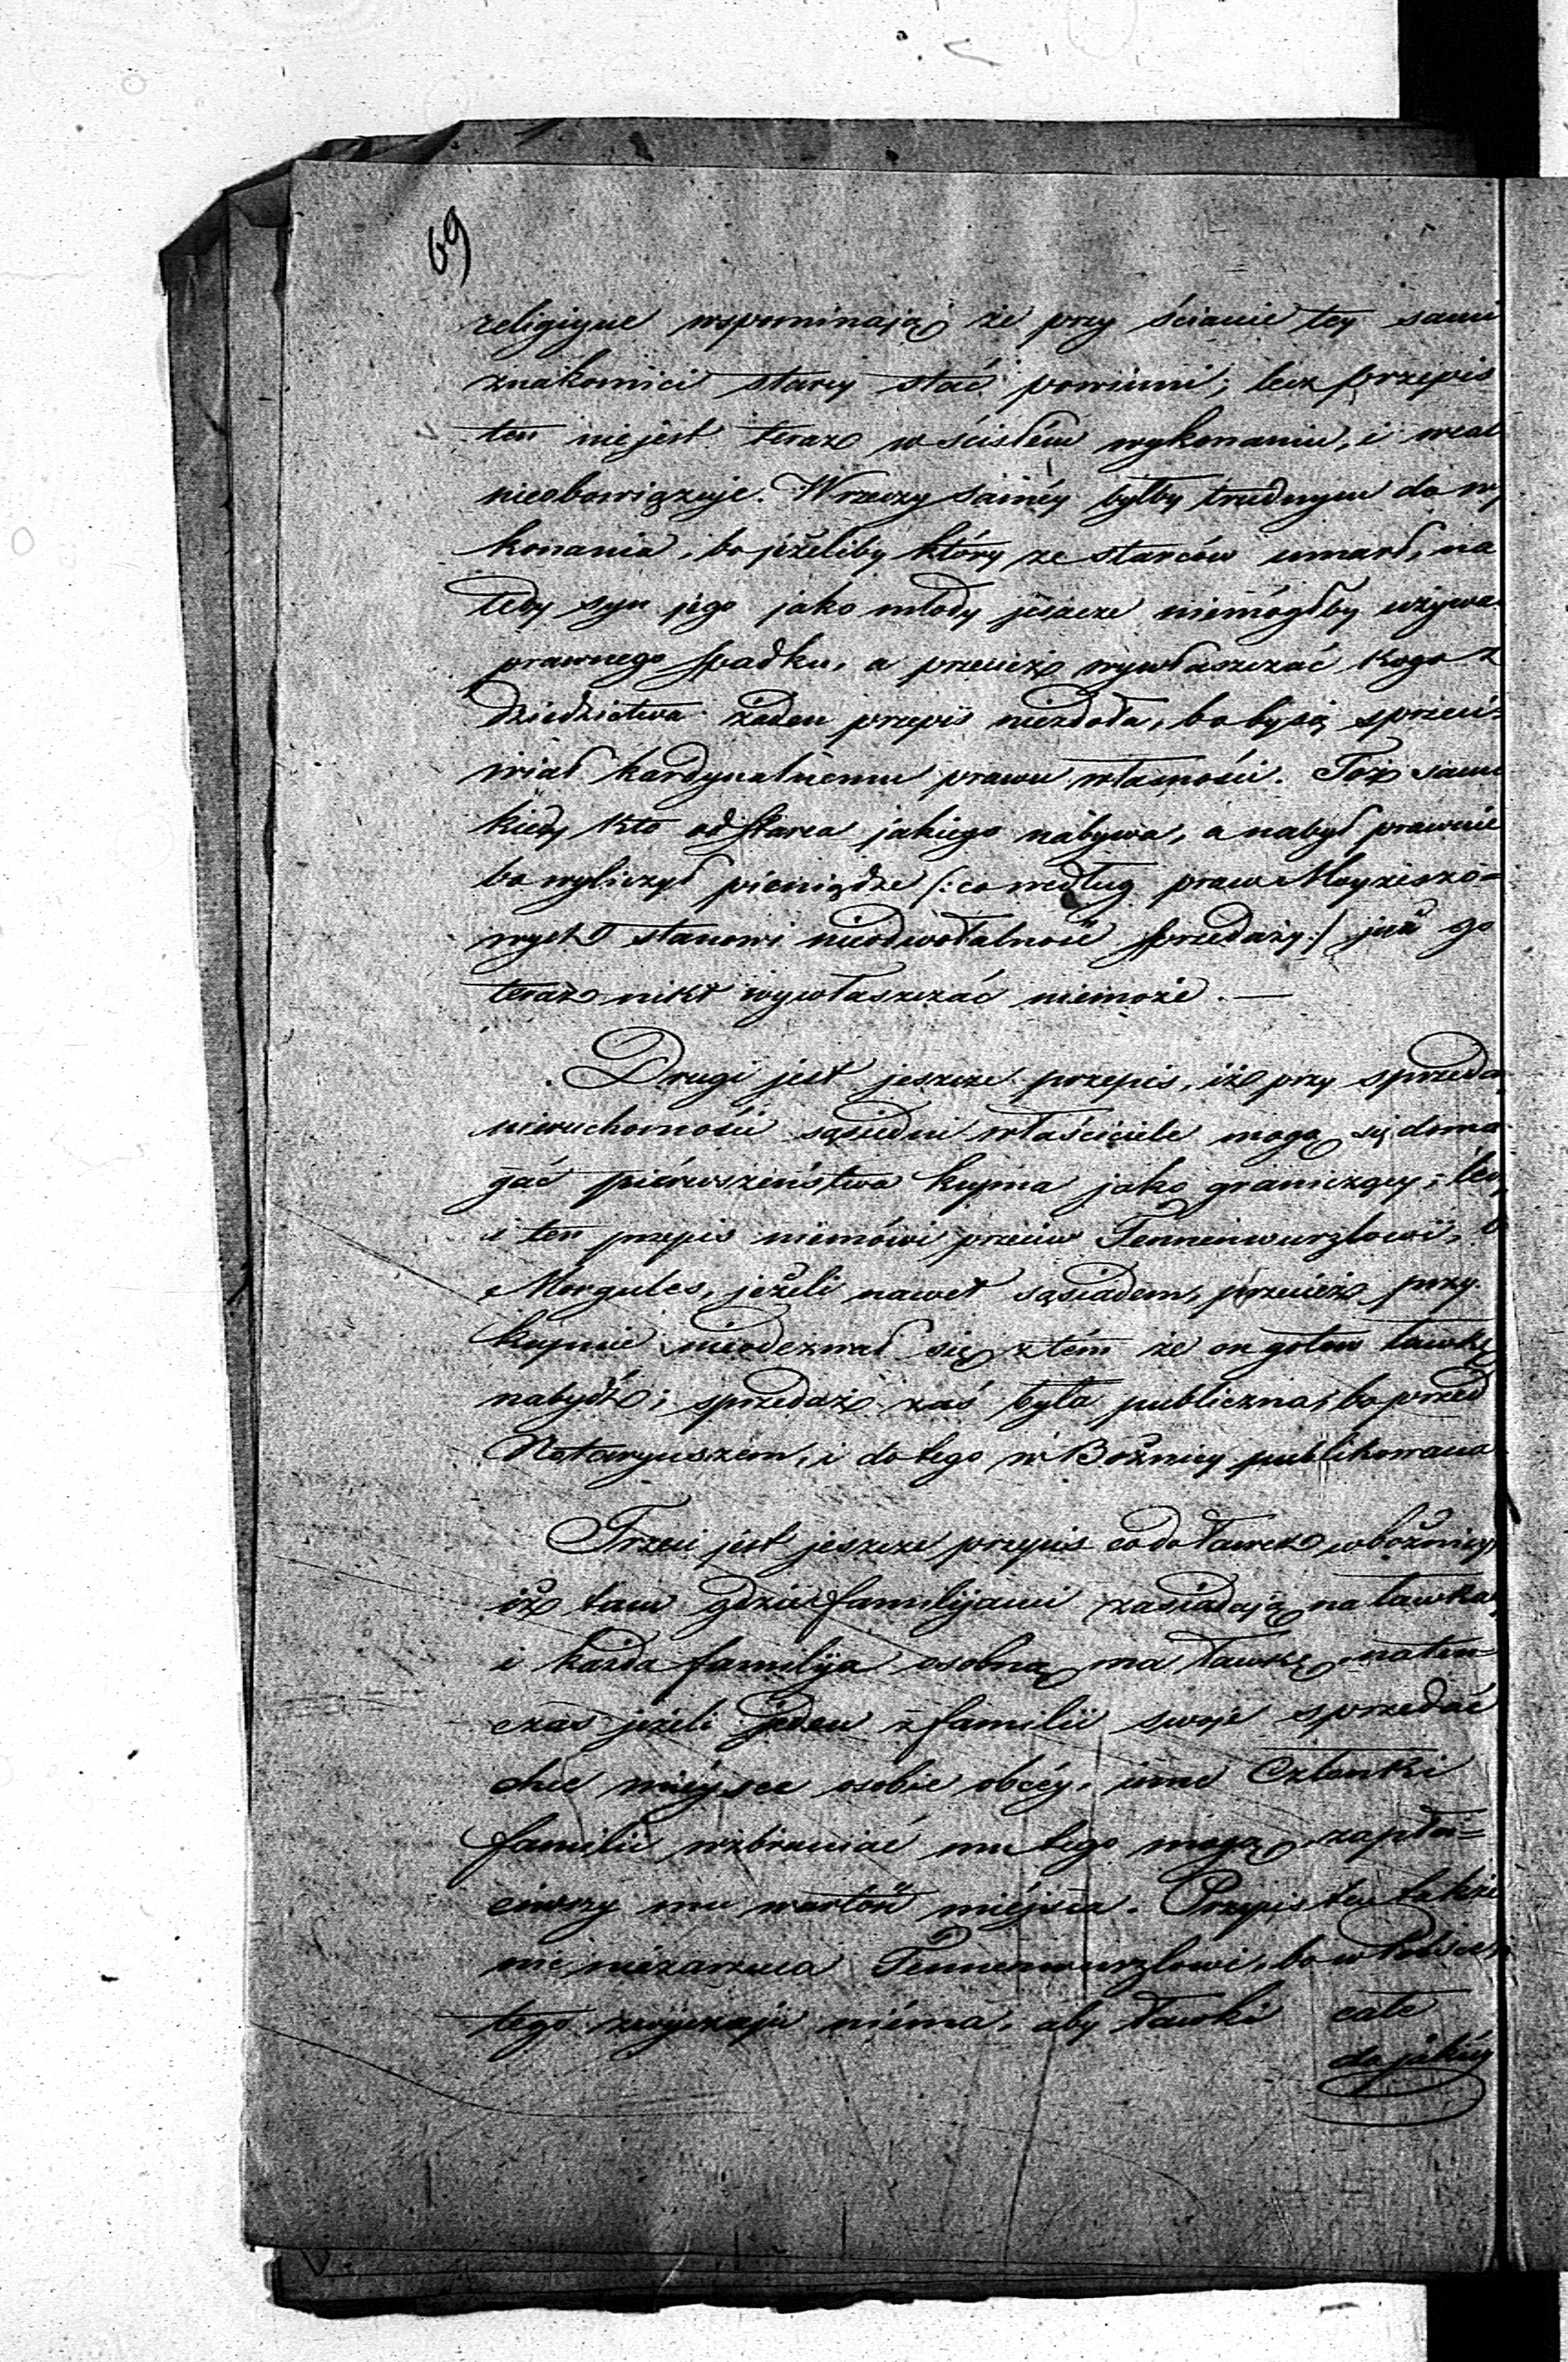 69
religiyne wspominają że przy ścianie tey sami
znakomici starcy stać powinni; lecz przepis
ten niejest teraz w ścisłém wykonaniu, i wcal
nieobowiązuje. W rzeczy saméy byłby trudnym do wy
konania, bo jeżeliby który ze starców umarł, na
tedy syn jego jako młody jeszcze niemógłby używa
prawnego spadku, a przecież wywłaszczać kogo z
dziedzictwa żaden przepis niezdoła, bo by się sprzeci=
wiał kardynalnemu prawu własności. Toż samo
kiedy kto od starca jakiego nabywa, a nabył prawnie
bo wyliczył pieniądze /: co według praw Moyżeszo=
wych stanowi nieodwołalność sprzedaży :/ już go
teraz nikt wywłaszczać niemoże. —
Drugi jest jeszcze przepis, iż przy sprzeda
nieruchomości sąsiedni właściciele mogą się doma
gać pierwszeństwa kupna jako graniczący; lec
i ten przepis niemówi przeciw Tennenwurzlowi, b
Morgules, jeżeli nawet sąsiadem, przecież przy
kupnie nieodezwał się z tém że on gotow ławkę
nabydź; sprzedaż zaś była publiczna, bo przed
Notaryuszem, i do tego w Bożnicy publikowana
Trzeci jest jeszcze przepis co do ławek w bożnicy,
iż tam gdzie familijami zasiadają na ławka
i każda familija osobną ma ławkę naten=
czas jeżeli jeden z familii swoje sprzedać
chce miéysce osobie obcéy, inne Członki
familii wzbraniać mu tego mogą zapła=
ciwszy mu wartość miéjsca. Przepis ten także
nic niezarzuca Tennenwurzlowi, bo w Polsce
tego zwyczaju niéma, aby ławki całe
do jakiéy